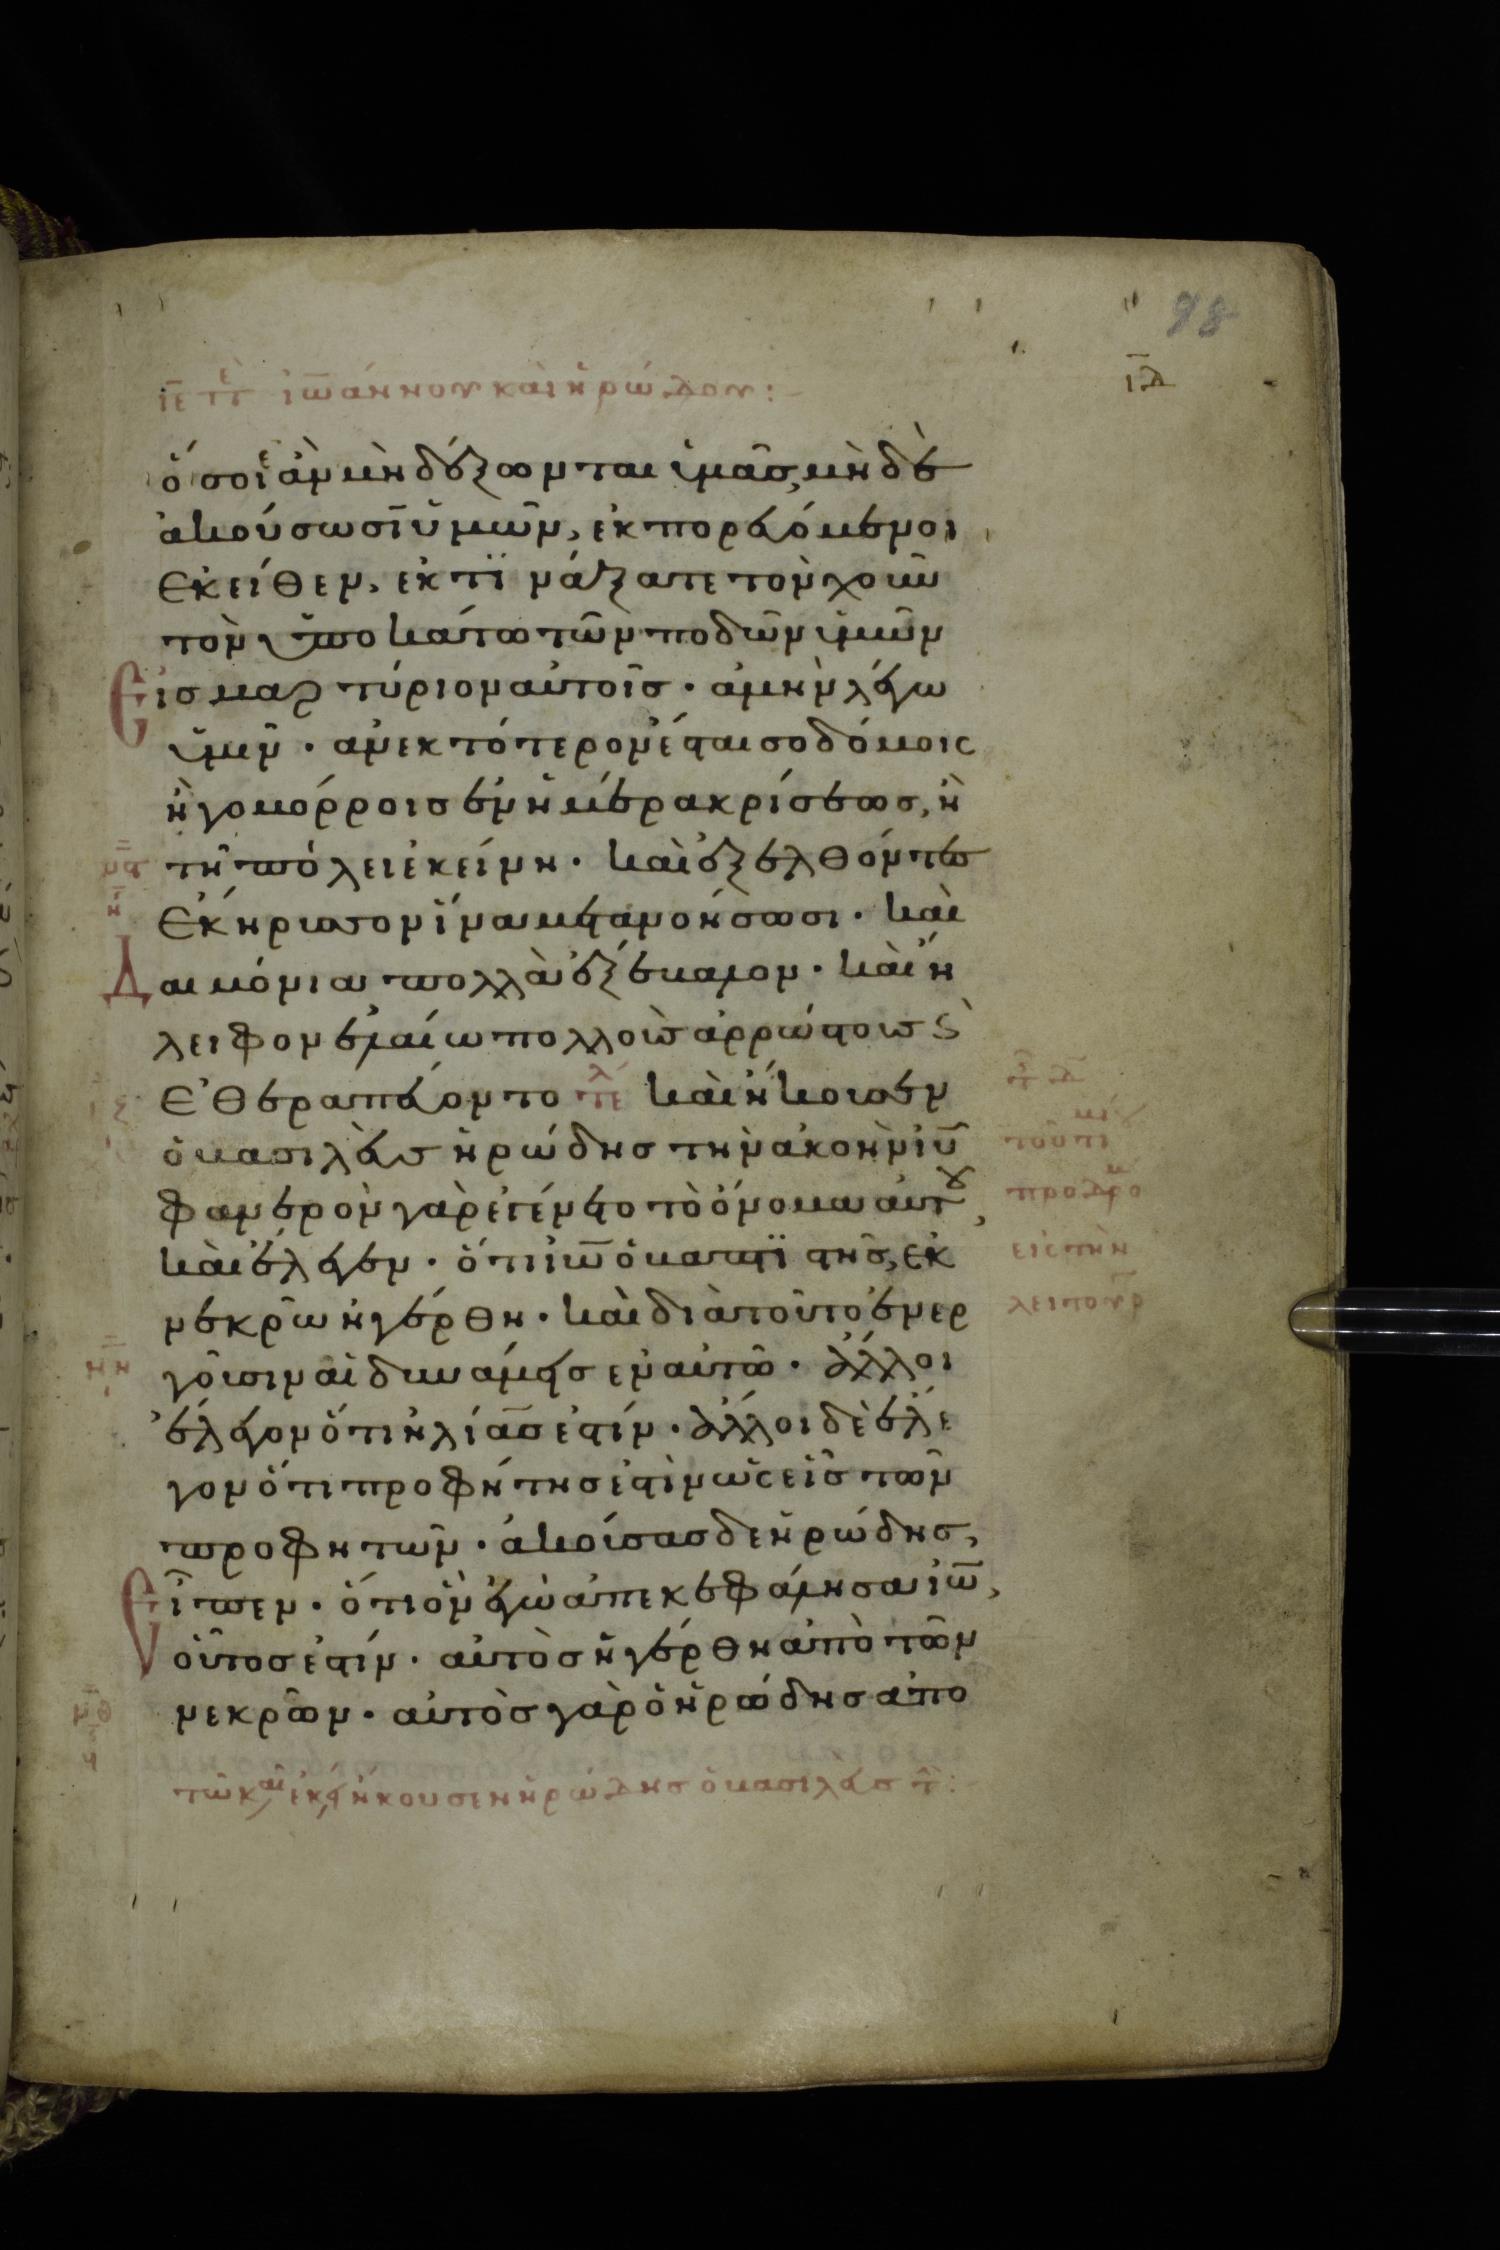 98
ιδ
ιε τι ιωάννου καὶ ἡρώδου :
ὅσοι ἐὰν μὴ δέξωνται ὑμᾶς, μὴ δὲ
ἀκούσωσιν ὑμῶν, ἐκπορευόμενοι
ἐκείθεν, ἐκτινάξατε τὸν χοῦν
τὸν ὑποκάτω τῶν ποδῶν ὑμῶν
εἰς μαρτύριον αὐτοῖς · ἀμὴν λέγω
ὑμῖν · ἀνεκτότερον ἔσται σοδόμοις
ἢ γομόρροις ἐν ἡμέρα κρίσεως, ἢ
τῇ πόλει ἐκείνη · καὶ ἐξελθόντες
ἐκήρυσσον ἵνα μετανοήσωσι · καὶ
δαιμόνια πολλὰ ἐξέβαλον · καὶ ἤ
λειφον ἐλαίω πολλοὺς ἀρρώστους ϗ
ἐθεραπεύοντο τε καὶ ἤκουσεν
ὁ βασιλεὺς ἡρώδης τὴν ἀκοὴν ιυ
φανερὸν γὰρ ἐγένετο τὸ ὄνομα αὐτοῦ,
καὶ ἔλεγεν · ὅτι ιω ὁ βαπτιστὴς, ἐκ
νεκρῶν ἠγέρθη · καὶ διὰ τοῦτο ἐνερ
γοῦσιν αἱ δυνάμεις ἐν αὐτῶ · ἄλλοι
ἔλεγον ὅτι ἠλίας ἐστίν · ἄλλοι δὲ ἔλε
γον ὅτι προφήτης ἐστὶν ὡς εἷς τῶν
προφητῶν · ἀκούσας δε ἡρώδης,
εἶπεν · ὅτι ὃν ἐγὼ ἀπεκεφάλησα ιω,
οὗτος ἐστίν · αὐτὸς ἠγέρθη ἀπὸ τῶν
νεκρῶν · αὐτὸς γὰρ ὁ ἡρώδης ἀπο
τῶ κ, αι ἐκ, ἤκουσεν ἡρώδης ὁ βασιλεὺς τ :
μζ
η
μη
μθ
εἰς τὴν
λειτουρ